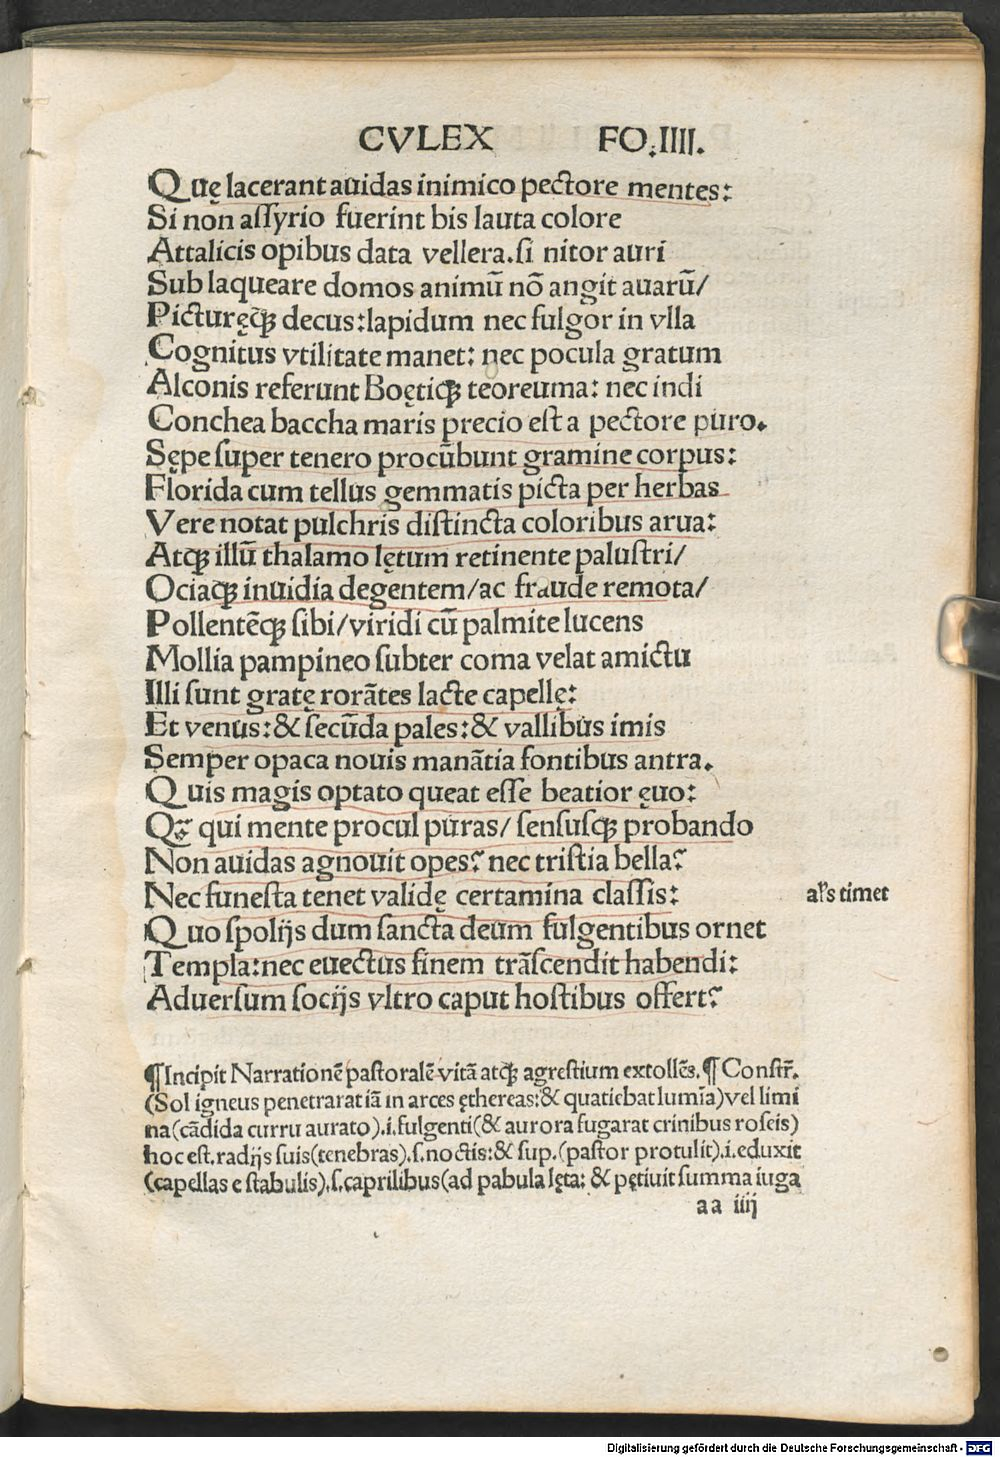 CVLEX FO.IIII.
Quę lacerant auidas inimico pectore mentes:
Si non assyrio fuerint bis lauta colore
Attalicis opibus data vellera. si nitor auri
Sub laqueare domos animū nō angit auarū/
Picturęꝗ decus: lapidum nec fulgor in vlla
Cognitus vtilitate manet: nec pocula gratum
Alconis referunt Boętiꝗ teoreuma: nec indi
Conchea baccha maris precio est a pectore puro.
Sępe super tenero procūbunt gramine corpus:
Florida cum tellus gemmatis picta per herbas
Vere notat pulchris distincta coloribus arua:
Atꝗ illū thalamo lętum retinente palustri/
Ociaꝗ inuidia degentem/ac fraude remota/
Pollentēꝗ sibi/viridi cū palmite lucens
Mollia pampineo subter coma velat amictu
Illi sunt gratę rorātes lacte capellę:
Et venus: & secūda pales: & vallibus imis
Semper opaca nouis manātia fontibus antra.
Quis magis optato queat esse beatior ęuo:
Qꝫ qui mente procul puras/ sensusꝗ probando
Non auidas agnouit opes? nec tristia bella?
Nec funesta tenet validę certamina classis: al's timet
Quo spolijs dum sancta deum fulgentibus ornet
Templa: nec euectus finem trāscendit habendi:
Aduersum socijs vltro caput hostibus offert?
¶Incipit Narrationē pastoralē vitā atꝗ agrestium extollēs. ¶Constr̄.
(Sol igneus penetrarat iā in arces ęthereas: & quatiebat lumīa) vel limi
na (cādida curru aurato) .i. fulgenti (& aurora fugarat crinibus roseis)
hoc est. radijs suis (tenebras) .s. noctis: & sup. (pastor protulit) .i. eduxit
(capellas e stabulis) .s. caprilibus (ad pabula lęta: & pętiuit summa iuga
aa iiij
Digitalisierung gefördert durch die Deutsche Forschungsgemeinschaft - DFG